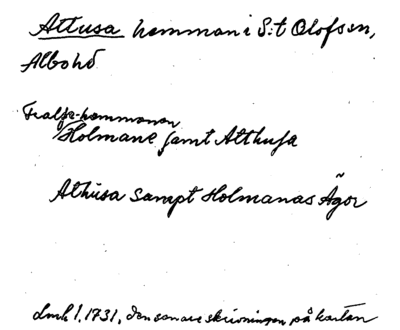 Attusa hemman i S:t Olofs sn,
Albo hd
Fralse-hemmanen
Holmane samt Althusa
Athusa sampt Holmanas Ägor
Lmh 1, 1731, den senare skrivningen på kartan